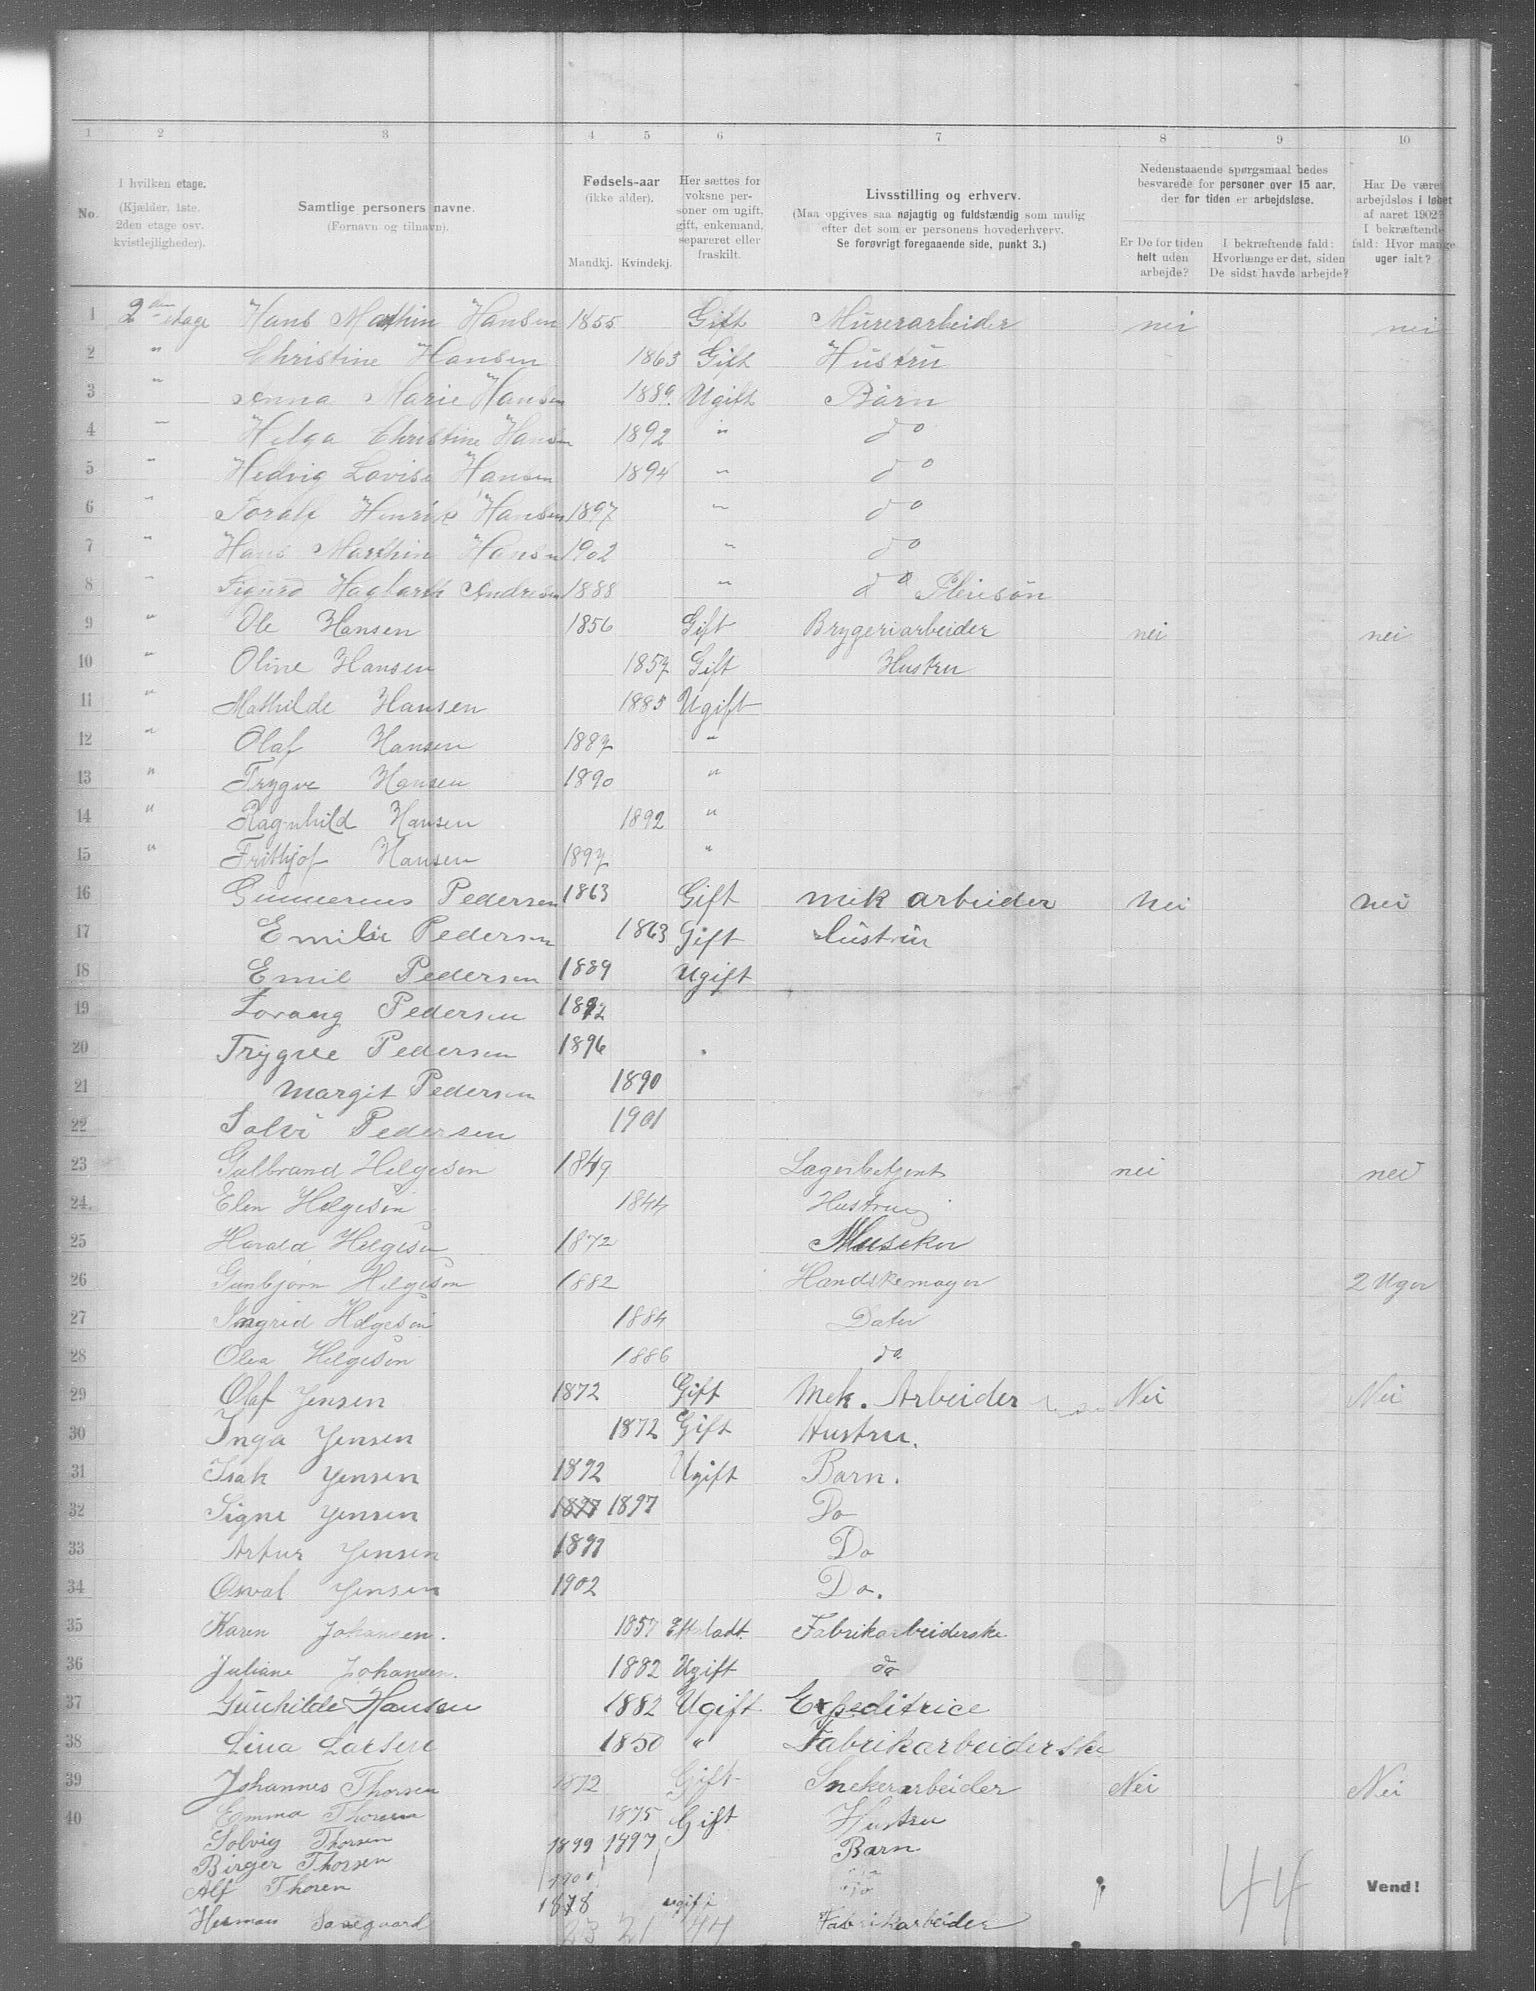 1 2 3 4 5 6 7 8 9 10
No.
I hvilken etage.
(Kjælder, 1ste.
2den etage osv.
kvistlejligheder).
Samtlige personers navne.
(Fornavn og tilnavn).
Fødsels-aar
(ikke alder).
Mandkj. Kvindekj.
Her sættes for
voksne per-
soner om ugift,
gift, enkemand,
separeret eller
fraskilt.
Livsstilling og erhverv.
(Maa opgives saa nøjagtig og fuldstændig som mulig
efter det som er personens hovederhverv.
Se forøvrigt foregaaende side, punkt 3.)
Nedenstaaende spørgsmaal bedes
besvarede for personer over 15 aar,
der for tiden er arbejdsløse.
Er De for tiden
helt uden
arbejde?
I bekræftende fald:
Hvorlænge er det, siden
De sidst havde arbejde?
Har De været
arbejdsløs i løbet
af aaret 1902?
I bekræftende
fald: Hvor mange
uger ialt?
1 2den etage Hans Mathin Hansen 1855 Gift Murerarbeider nei nei
2 " Christine Hansen 1863 Gift Hustru
3 " Anna Marie Hansen 1889. Ugift Barn
4 " Helga Christine Hansen 1892 " do
5 " Hedvig Lovise Hansen 1894 " do
6 " Toralf Henrik Hansen 1897 " do
7 " Hans Marthin Hansen 1902 " do
8 " Sigurd Hagbarth Andresen 1888 " do Pleisøn
9 " Ole Hansen 1856 Gift Brygeriarbeider nei nei
10 " Oline Hansen 1857 Gift Hustru
11 " Mathilde Hansen 1885 Ugift
12 " Olaf Hansen 1887 "
13 " Trygve Hansen 1890 "
14 " Ragnhild Hansen 1892 "
15 " Frithjof Hansen 1897 "
16 Gunnerius Pedersen 1863 Gift mek arbeider Nei nei
17 Emilie Pedersen 1863 Gift Hustrur
18 Emil Pedersen 1889 Ugift
19 Lorang Pedersen 1892
20 Trygve Pedersen 1896
21 Margit Pedersen 1890
22 Solvi Pedersen 1901
23 Gulbrand Helgesen 1849 Lagerbetjent nei nei
24. Elen Helgesen 1844 Hustru
25 Harald Helgesen 1872 Musiker
26 Gunbjørn Helgesen 1882 Handskemager 2 Uger
27 Ingrid Helgesen 1884 Dater
28 Olea Helgesen 1886 do
29 Olaf Jensen 1872 Gift Mek. Arbeider Nei Nei
30 Inga Jensen 1872 Gift Hustru.
31 Isak Jensen 1892 Ugift Barn.
32 Signe Jensen 1897 1897 Do
33 Artur Jensen 1899 Do
34 Osval Jensen 1902 Do.
35 Karen Johansen. 1857 Efterladt. Fabrikarbeiderske
36 Juliane Johansen. 1882 Ugift do
37 Gunhilde Hansen 1882 Ugift Expeditrice
38 Lina Larsen 1850 " Fabrikarbeiderske
39 Johannes Thorsen 1872 Gift Snekerarbeider Nei Nei
40 Emma Thorsen 1875 Gift Hustru
Solvig Thorsen 1897 Barn
Birger Thorsen 1899
Alf Thoren 1901 do
Herman Sanegaard 1878 ugift Fabrikarbeider
23 21 44
44
Vend!